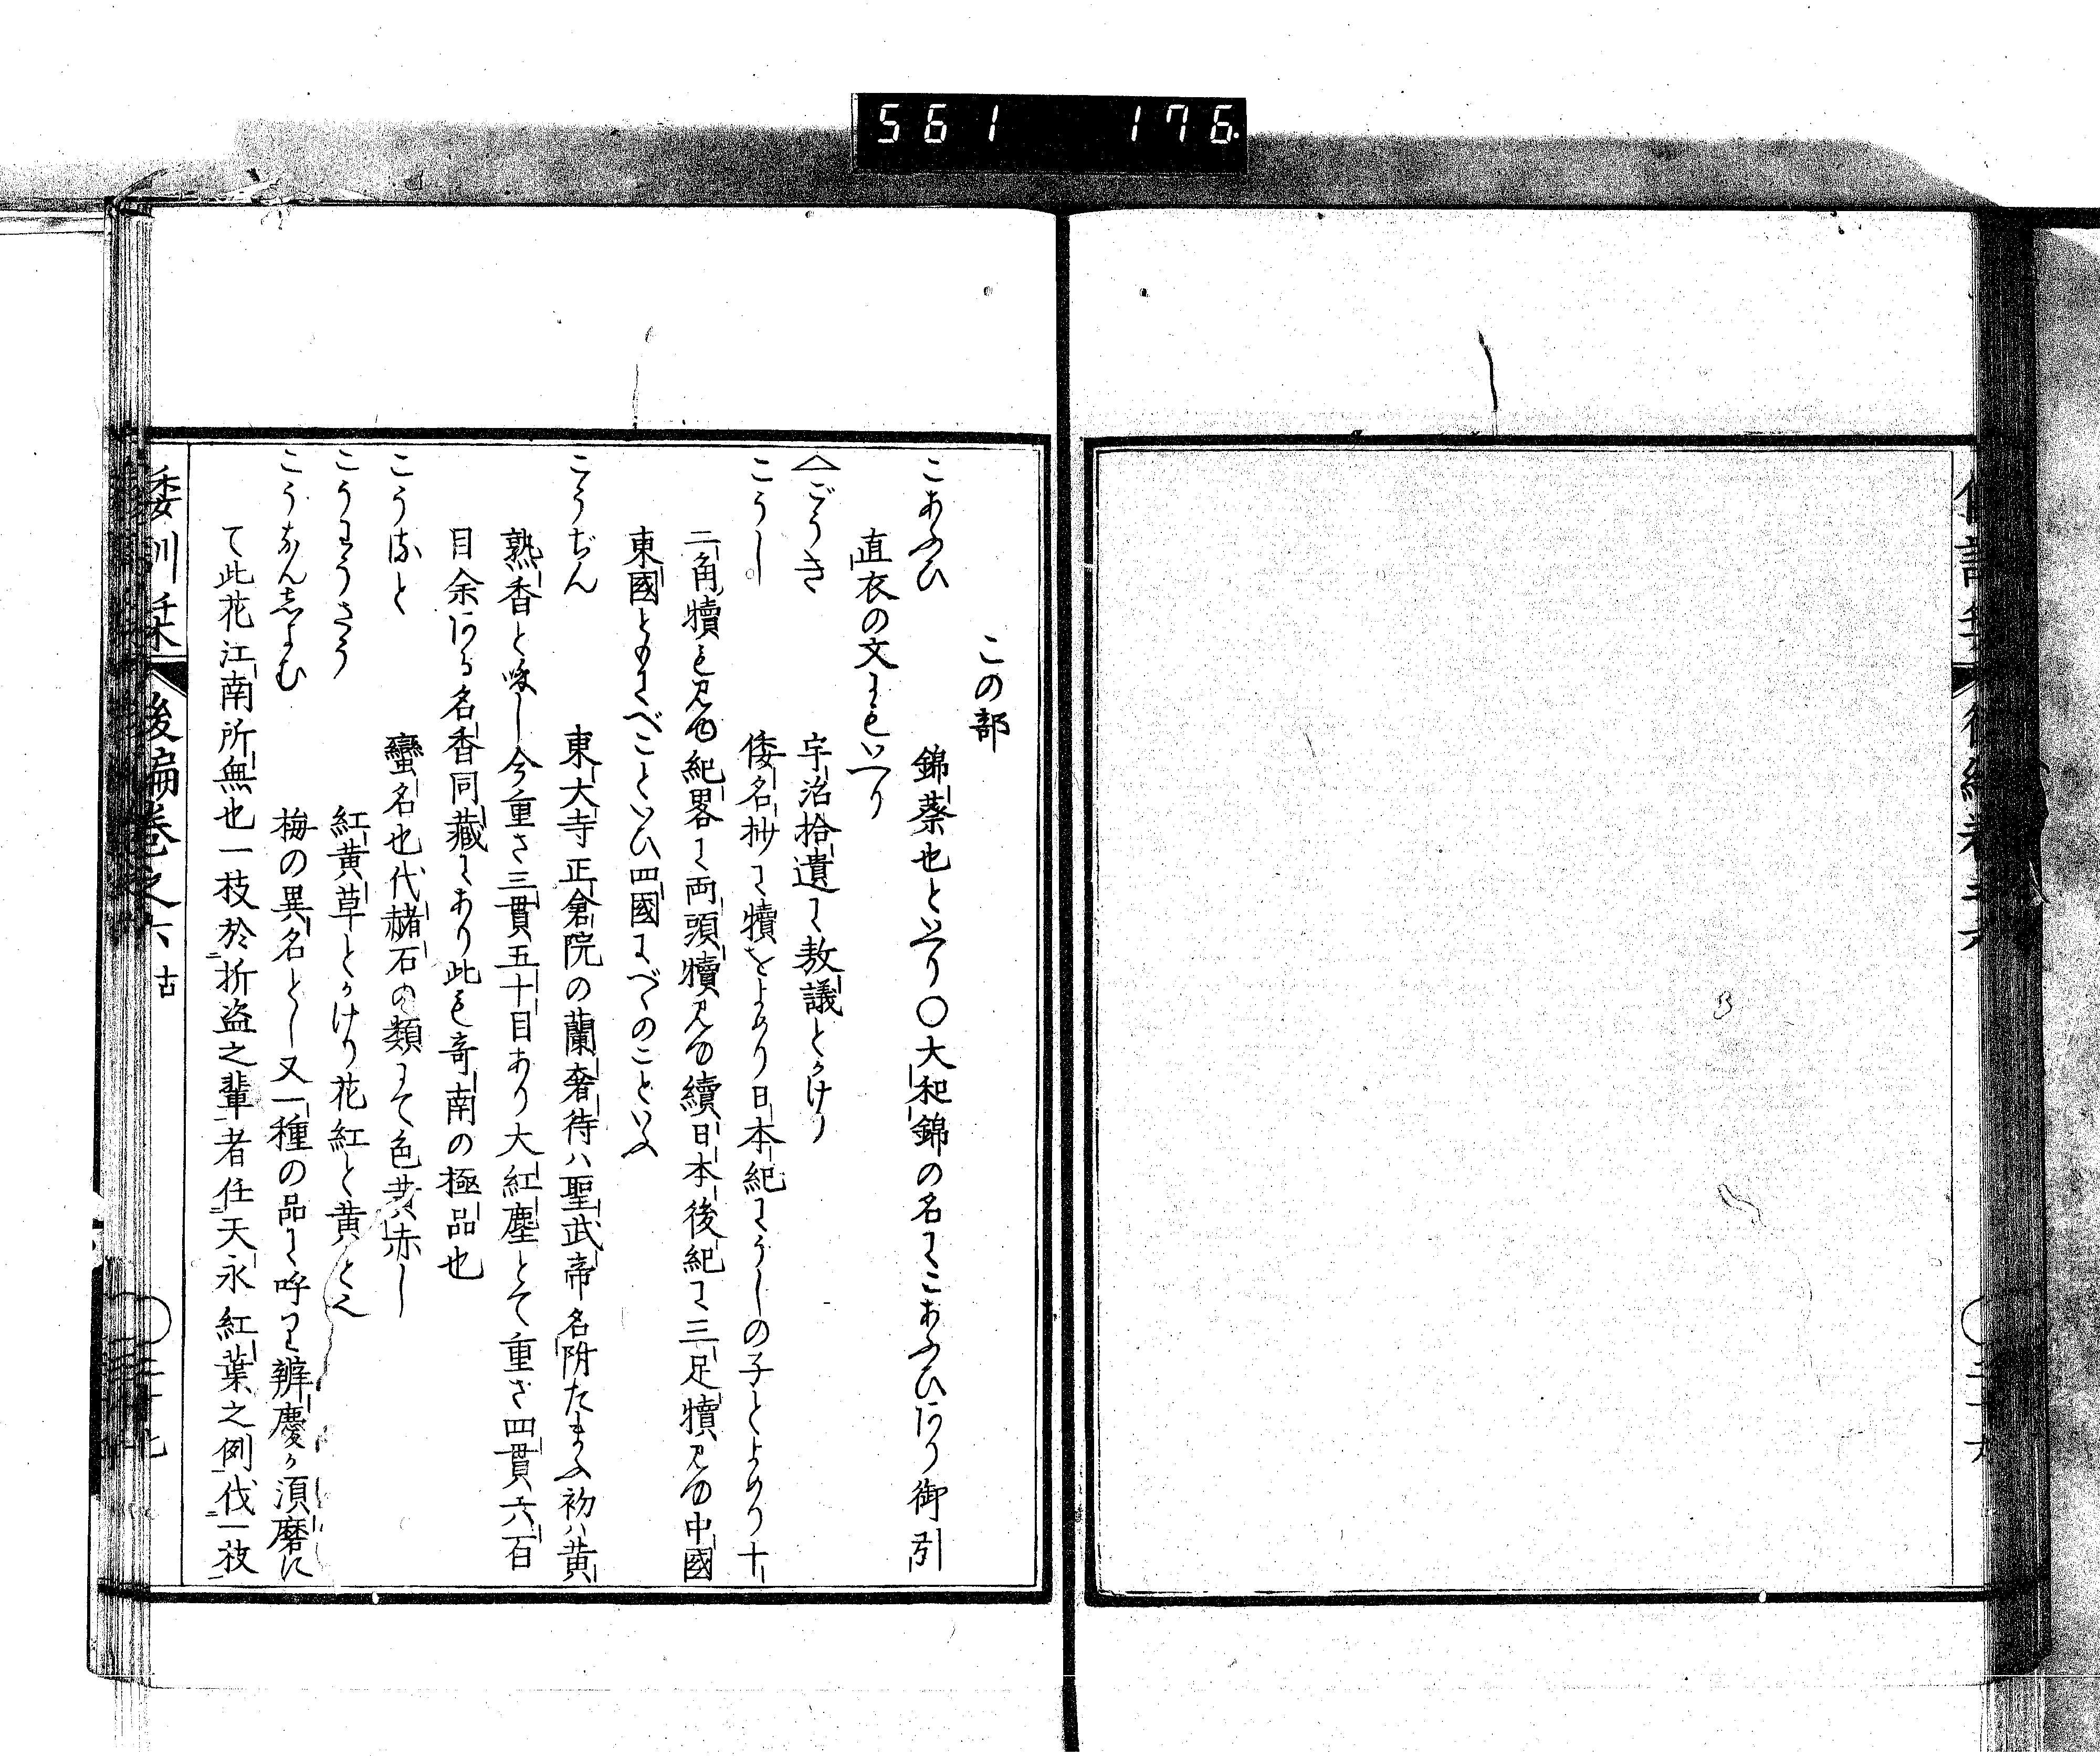 561 176
この部
こあふひ 錦葵也といへり〇大和錦の名にこあふひあり御引
直衣の文にもいへり
へごうき 宇治拾遺に敖議とかけり
こうし 倭名抄に犢をよめり日本紀にうしの子とよめり十
二角犢も見ゆ紀畧に両頭犢見ゆ續日本後紀に三足犢見ゆ中國
東國ともにべこといひ四國にべゝのこといふ
こうぢん 東大寺正倉院の蘭奢待ハ聖武帝名附たまふ初ハ黄
熟香と喚し今重さ三貫五十目あり大紅塵とて重さ四貫六百
目余ある名香同藏にあり此も奇南の極品也
こうなと 蠻名也代赭石の類にて色黄赤し
こうわうさう 紅黄草とかけり花紅と黄と也
こうなんしよむ 梅の異名とし又一種の品に呼り辨慶か須磨に
て此花江南所無也一枝於折盗之輩者任天永紅葉之例伐一枝
倭訓栞 後編巻之六 古